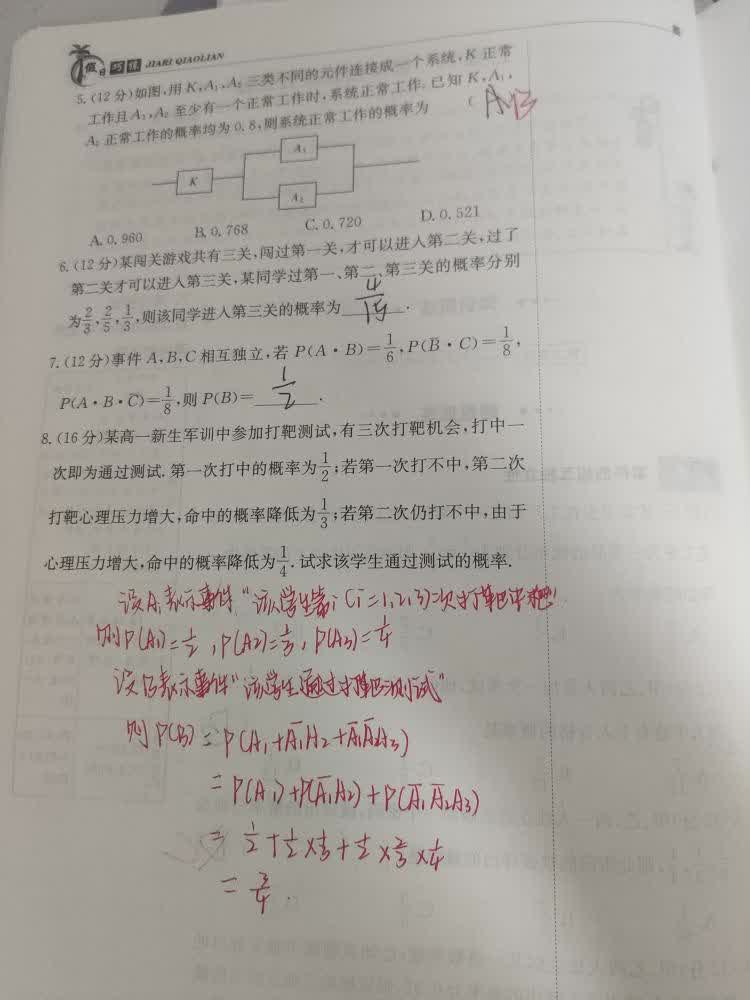 假日巧练 JIARI QIAOLIAN
5.(12分)如图,用K,A₁,A₂三类不同的元件连接成一个系统,K正常
工作且A₁,A₂至少有一个正常工作时,系统正常工作.已知K,A₁,
A₂正常工作的概率均为0.8,则系统正常工作的概率为 ( A B
A₁
K
A₂
A. 0.960 B. 0.768 C. 0.720 D. 0.521
6.(12分)某闯关游戏共有三关,闯过第一关,才可以进入第二关,过了
第二关才可以进入第三关,某同学过第一、第二、第三关的概率分别
为2/3,2/5,1/3,则该同学进入第三关的概率为 4/15 .
7.(12分)事件A,B,C相互独立,若P(A·B)=1/6,P(B̄·C)=1/8,
P(A·B·C̄)=1/8,则P(B)= 1/2 .
8.(16分)某高一新生军训中参加打靶测试,有三次打靶机会,打中一
次即为通过测试.第一次打中的概率为1/2;若第一次打不中,第二次
打靶心理压力增大,命中的概率降低为1/3;若第二次仍打不中,由于
心理压力增大,命中的概率降低为1/4.试求该学生通过测试的概率.
设Aᵢ表示事件"该学生第i(i=1,2,3)次打靶中靶"
则P(A₁)=1/2,P(A2)=1/3,P(A3)=1/4
设B表示事件"该学生通过打靶测试"
则P(B)=P(A₁+Ā₁A₂+Ā₁Ā₂A₃)
=P(A₁)+P(Ā₁A₂)+P(Ā₁Ā₂A₃)
=1/2+1/2×1/3+1/2×2/3×1/4
=3/4.